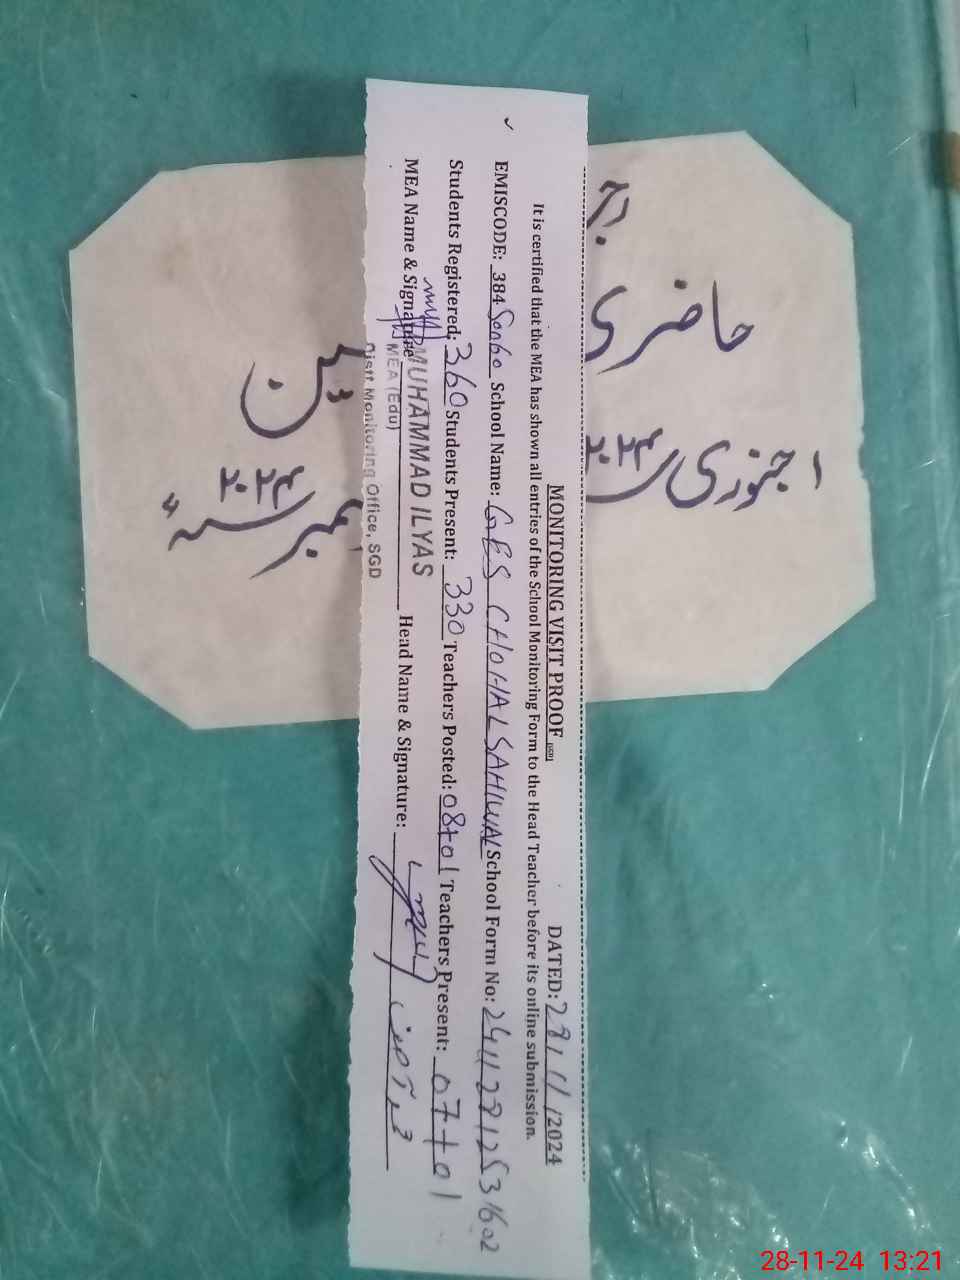 MONITORING VISIT PROOF DATED: 28/11/2024
It is certified that the MEA has shown all entries of the School Monitoring Form to the Head Teacher before its online submission.
EMISCODE: 384 School Name: GES CHOHAL SAHIWAL School Form No:
Students Registered: 360 Students Present: 330 Teachers Posted: 08+01 Teachers Present: 07+01
MEA Name & Signature MUHAMMAD ILYAS Head Name & Signature:
MEA (Edu)
Distt Monitoring Office, SGD
حاضری
۱ جنوری ۲۰۲۴
۲۰۲۴
28-11-24 13:21